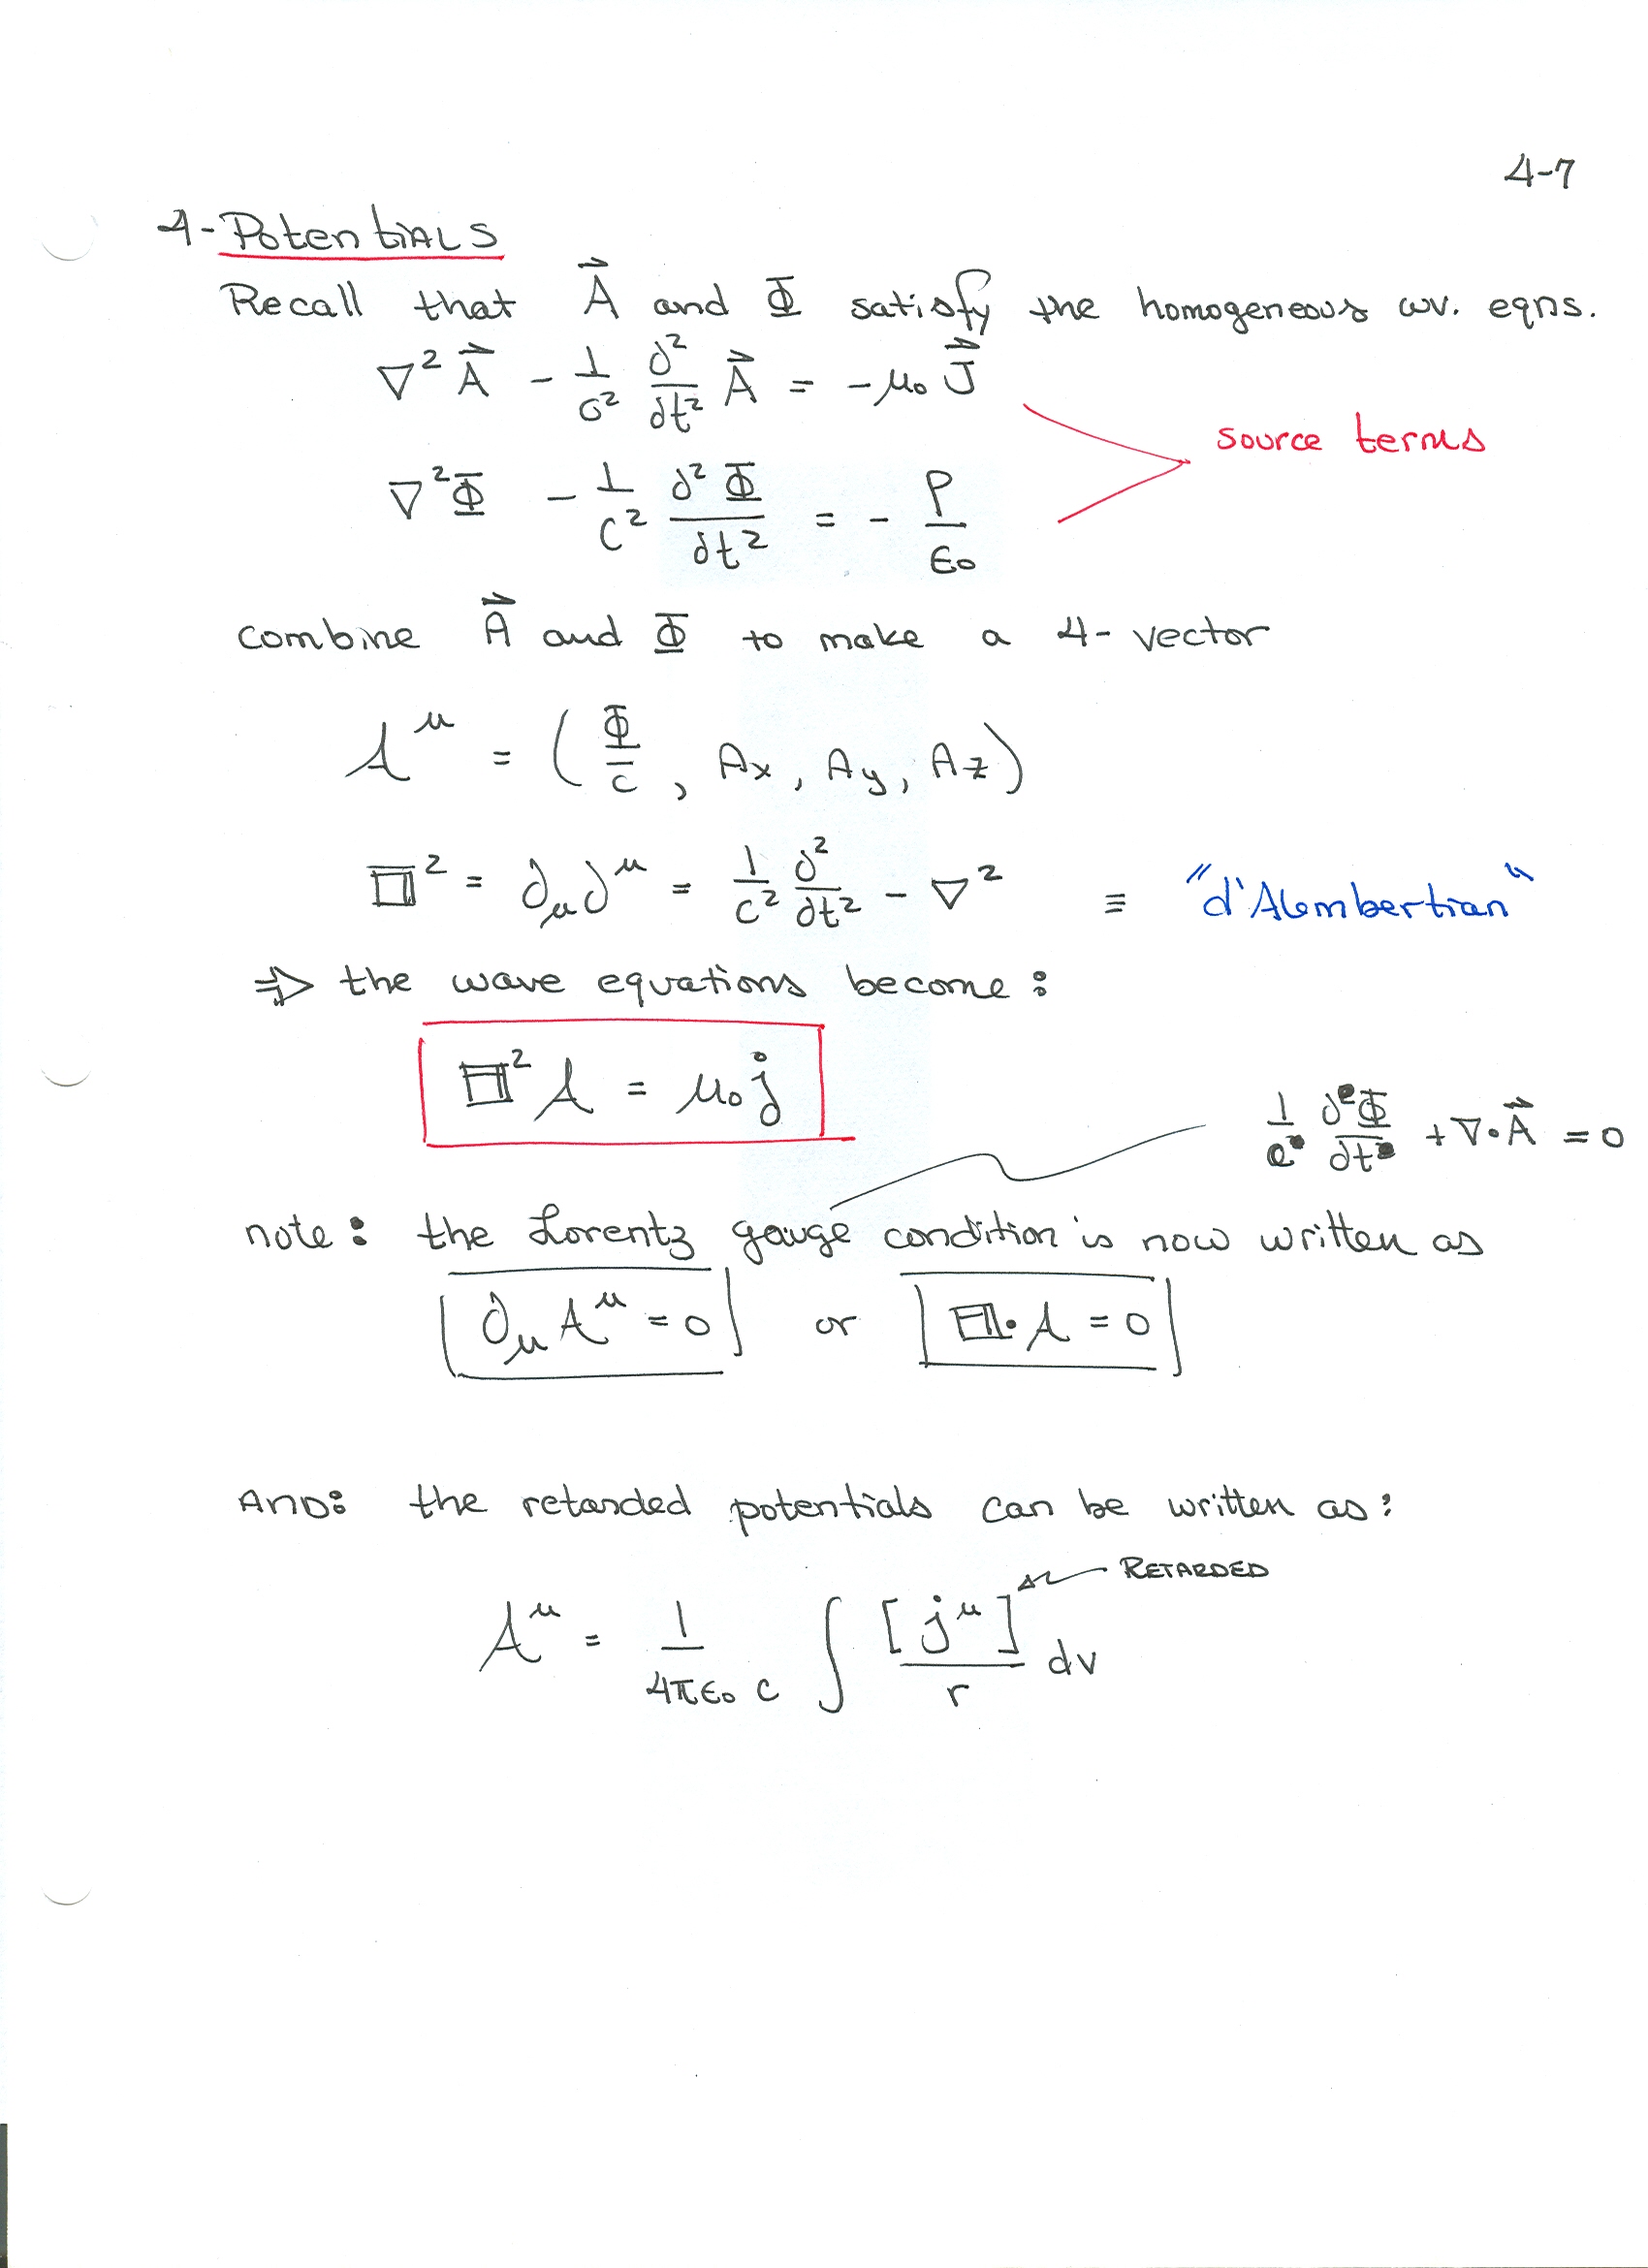 4-7
4-Potentials
Recall that A⃗ and Φ satisfy the homogeneous wv. eqns.
∇² A⃗ - 1/c² ∂²/∂t² A⃗ = -μ₀ J⃗
source terms
∇²Φ - 1/c² ∂²Φ/∂t² = - ρ/ε₀
combine A⃗ and Φ to make a 4-vector
A^μ = (Φ/c, Ax, Ay, Az)
□² = ∂_μ ∂^μ = 1/c² ∂²/∂t² - ∇² ≡ "d'Alembertian"
⇒ the wave equations become:
□² A = μ₀ j
1/c² ∂Φ/∂t + ∇·A⃗ = 0
note: the Lorentz gauge condition is now written as
∂_μ A^μ = 0 or □·A = 0
AND: the retarded potentials can be written as:
RETARDED
A^μ = 1/4πε₀c ∫ [j^μ]/r dv